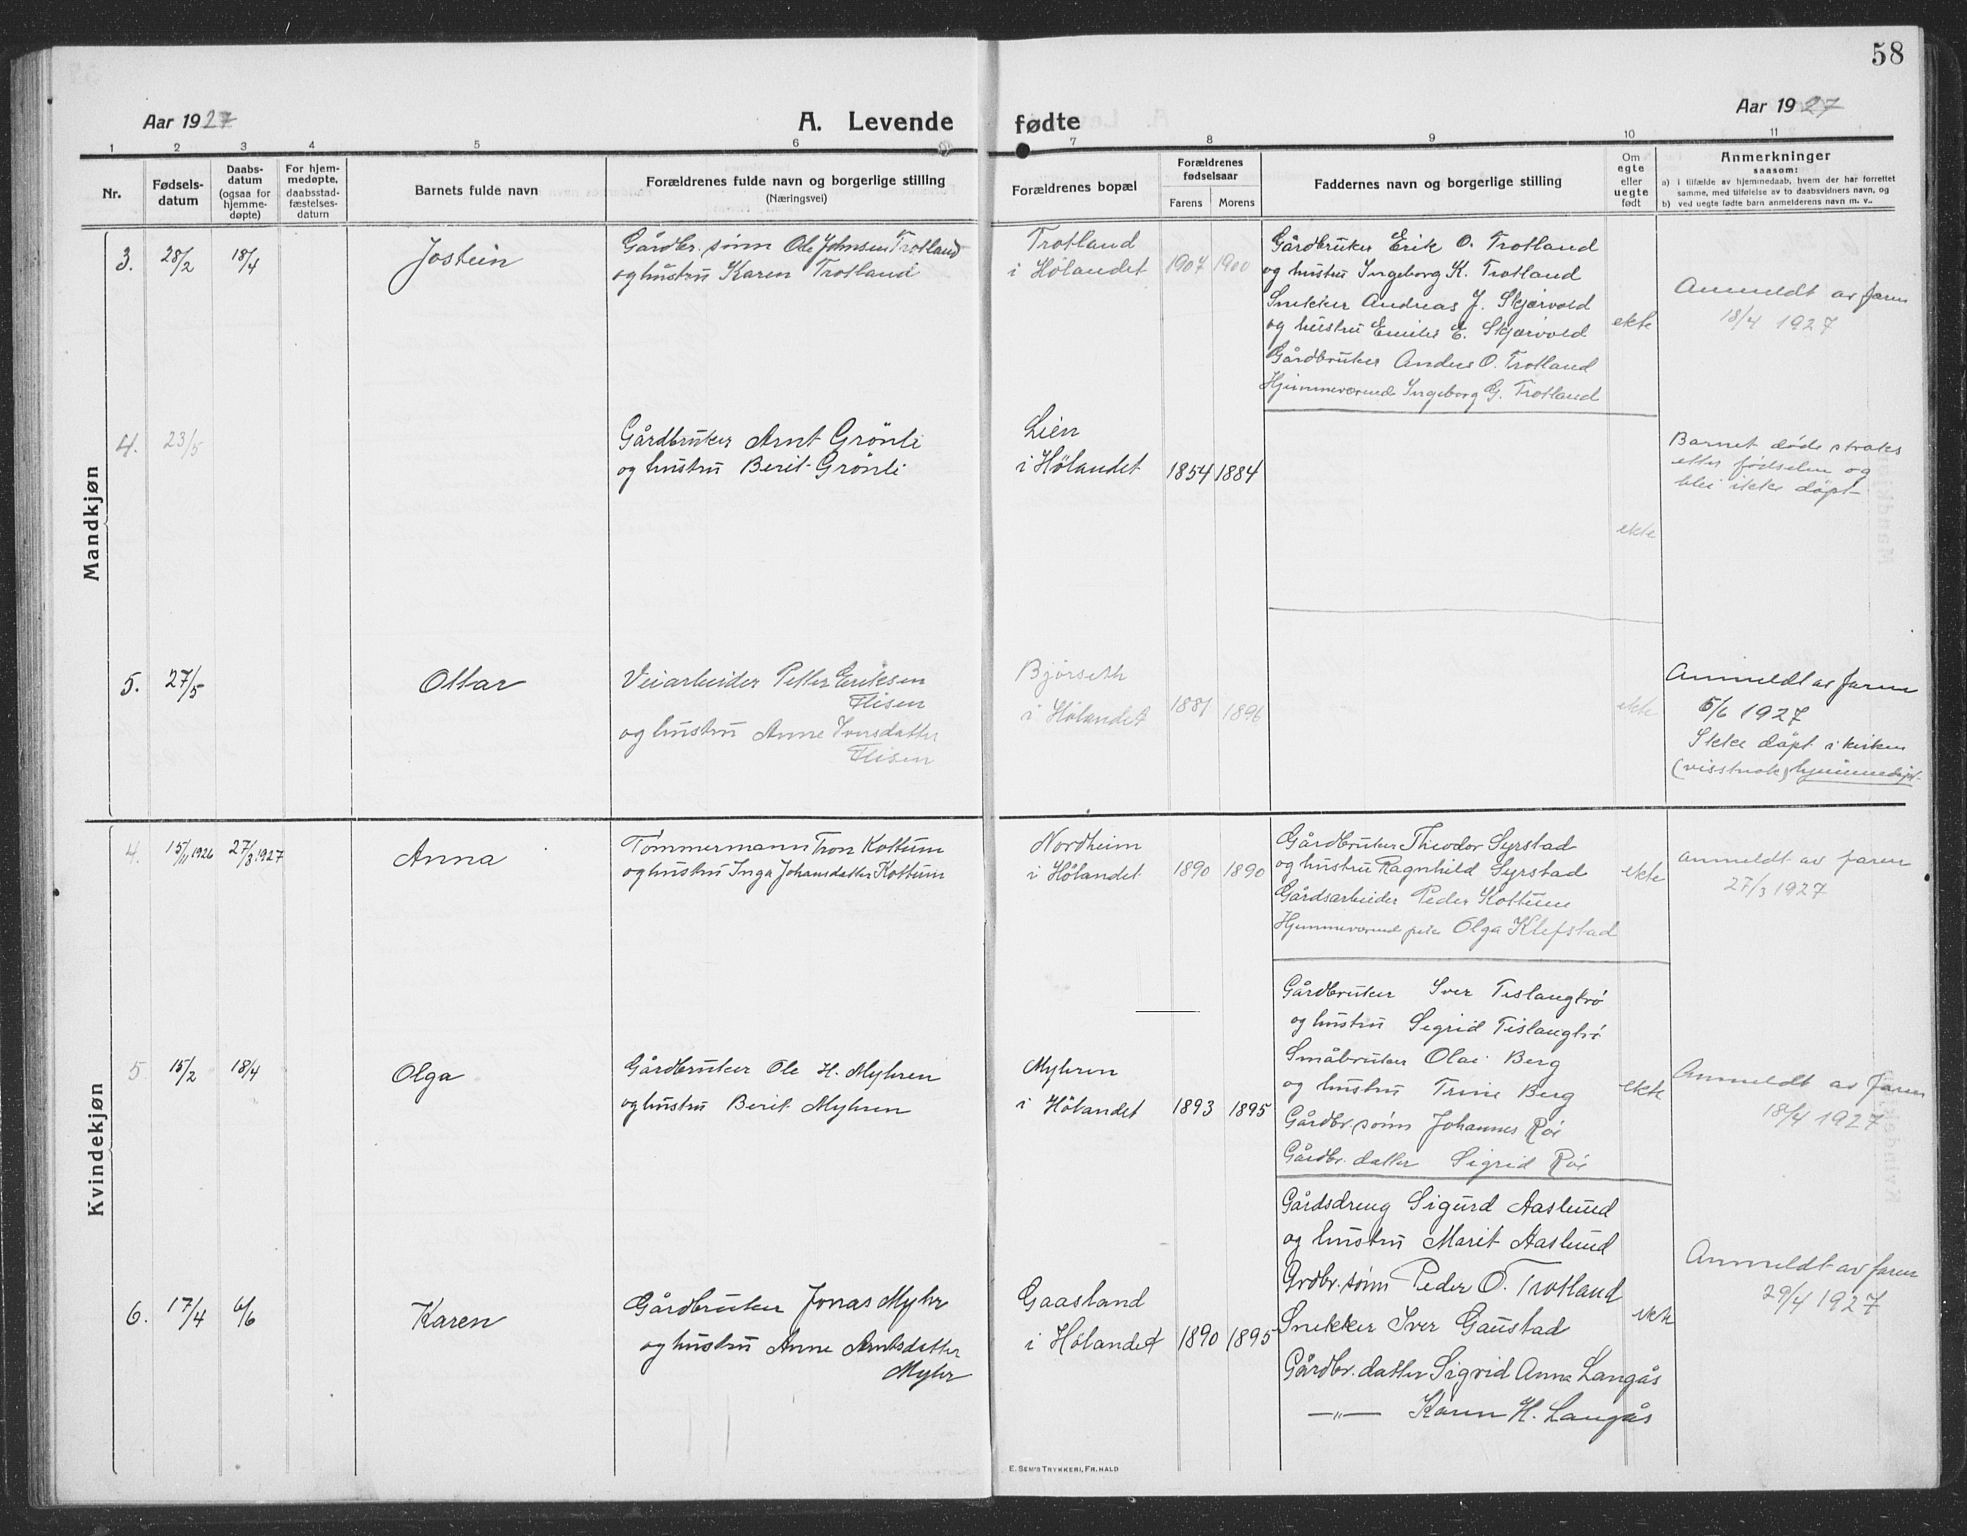 58
Aar 1927
A. Levende fødte
Aar 1927
1 2 3 4 5 6 7 8 9 10 11
Nr.
Fødsels-
datum
Daabs-
datum
(ogsaa for
hjemme-
døpte)
For hjem-
medøpte,
daabsstad-
fæstelses-
datum
Barnets fulde navn
Forældrenes fulde navn og borgerlige stilling
(Næringsvei)
Forældrenes bopæl
Forældrenes
fødselsaar
Farens Morens
Faddernes navn og borgerlige stilling
Om
egte
eller
uegte
født
Anmerkninger
saasom:
a) i tilfælde av hjemmedaab, hvem der har forrettet
samme, med tilføielse av to daabsvidners navn, og
b) ved uegte fødte barn anmelderens navn m. v..
Mandkjøn
3. 28/2 18/4 Jostein
Gårdbr. sønn Ole Johnsen Trotland
og hustru Karen Trotland
Trotland
i Hølandet 1907 1900
Gårdbruker Erik O. Trotland
og hustru Ingeborg K. Trotland
Snekker Andreas J. Skjærvold
og hustru Emilie E. Skjærvold
Gårdbruker Anders O. Trotland
Hjemmeværende Ingeborg G. Trotland
ekte
Anmeldt av faren
18/4 1927
4. 23/5
Gårdbruker Arnt Grönli
og hustru Berit Grönli
Lien
i Hölandet 1854 1884
ekte
Barnet døde straks
etter fødselen og
blei ikke døpt
5. 27/5 Ottar
Veiarbeider Petter Eriksen
Flisen
og hustru Anne Iversdatter
Flisen
Bjørseth
i Hölandet 1881 1896
ekte
Anmeldt av faren
5/6 1927
Ikke døpt i kirken
(visstnok) hjemmedøpt
Kvindekjøn
4. 15/11 1926 27/3 1927 Anna
Tømmermann Tron Kottum
og hustru Inga Johansdatter Kottum
Nordheim
i Hölandet 1890 1890
Gårdbruker Theodor Syrstad
og hustru Ragnhild Syrstad
Gårdsarbeider Peder Kottum
Hjemmeværende pike Olga Klefstad
ekte
Anmeldt av faren
27/3 1927
5 15/2 18/4 Olga
Gårdbruker Ole H. Myhren
og hustru Berit Myhren
Myhren
i Hölandet 1893 1895
Gårdbruker Iver Tislaugtrø
og hustru Sigrid Tislaugtrø
Småbruker Olai Berg
og hustru Trine Berg
Gårdbr. sønn Johannes Røe
Gårdbr. datter Sigrid Røe
ekte
Anmeldt av faren
18/4 1927
6. 17/4 6/6 Karen
Gårdbruker Jonas Myhr
og hustru Anne Arntsdatter
Myhr
Gaasland
i Hölandet 1890 1895
Gårdsdreng Sigurd Aaslund
og hustru Marit Aaslund
Grdbr. sønn Peder O. Trotland
Snekker Iver Gaustad
Gårdbr. datter Sigrid Anna Langås
—„— Karen H. Langås
ekte
Anmeldt av faren
29/4 1927
E. Sem's Trykkeri, Fr.hald